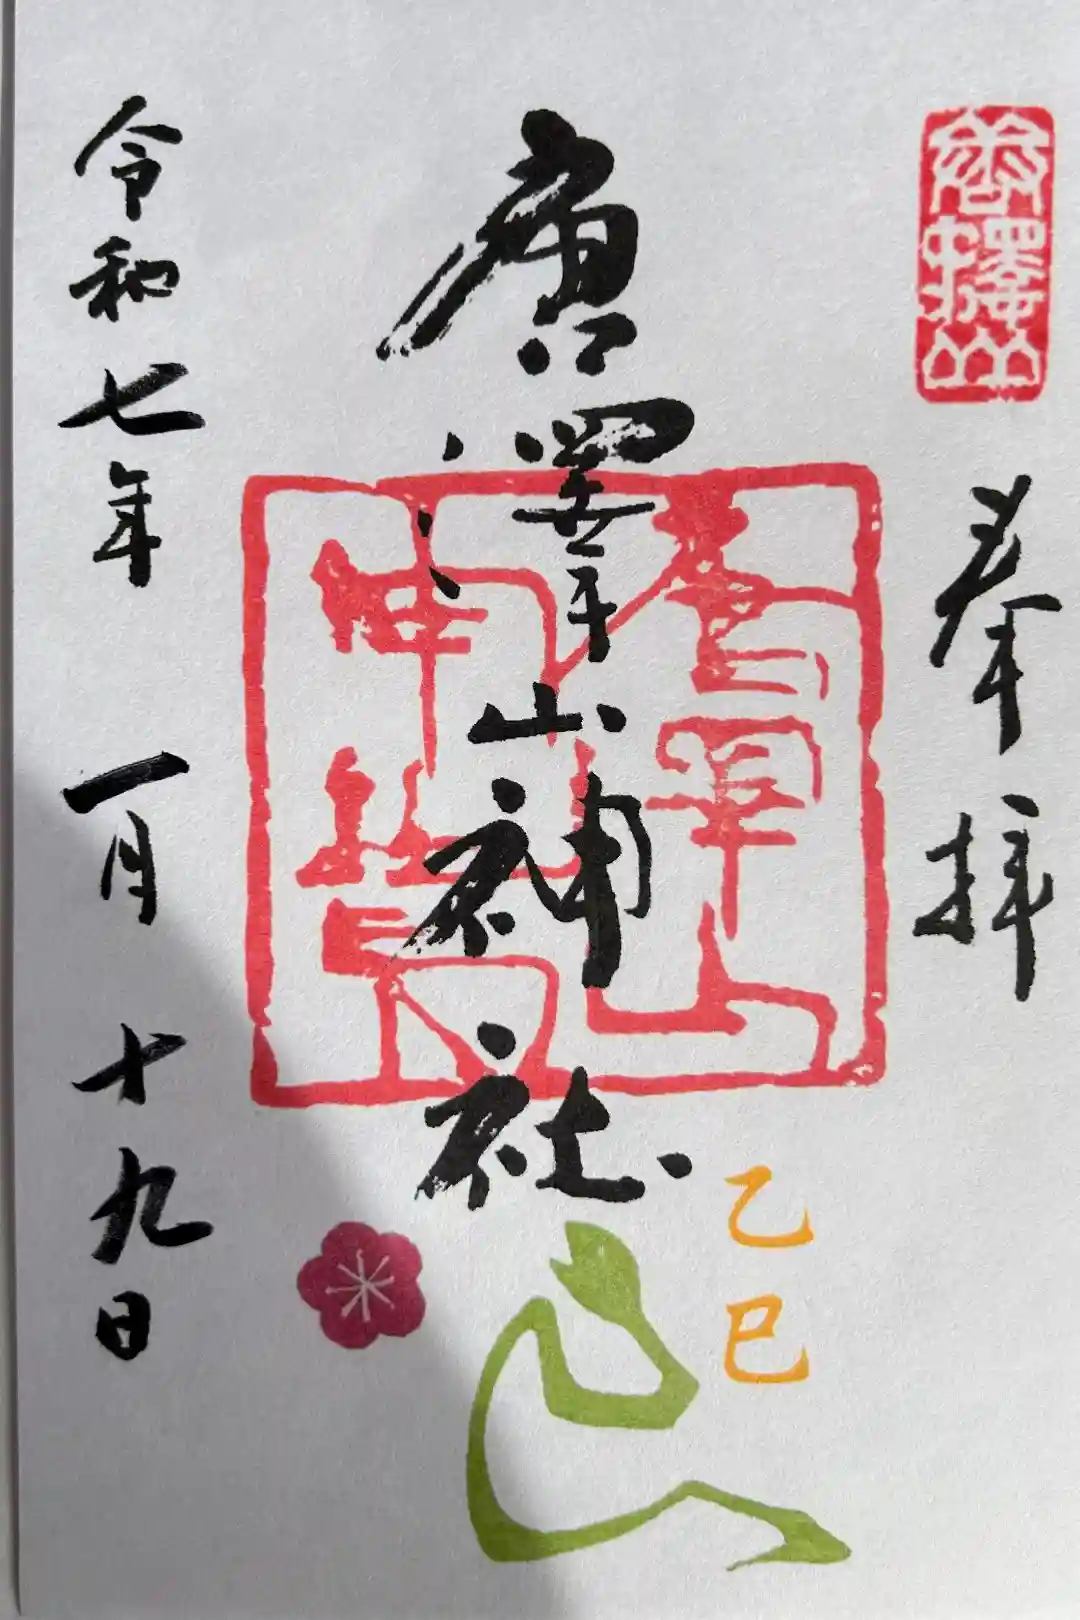 奉拝
唐澤山神社
乙巳
令和七年一月十九日